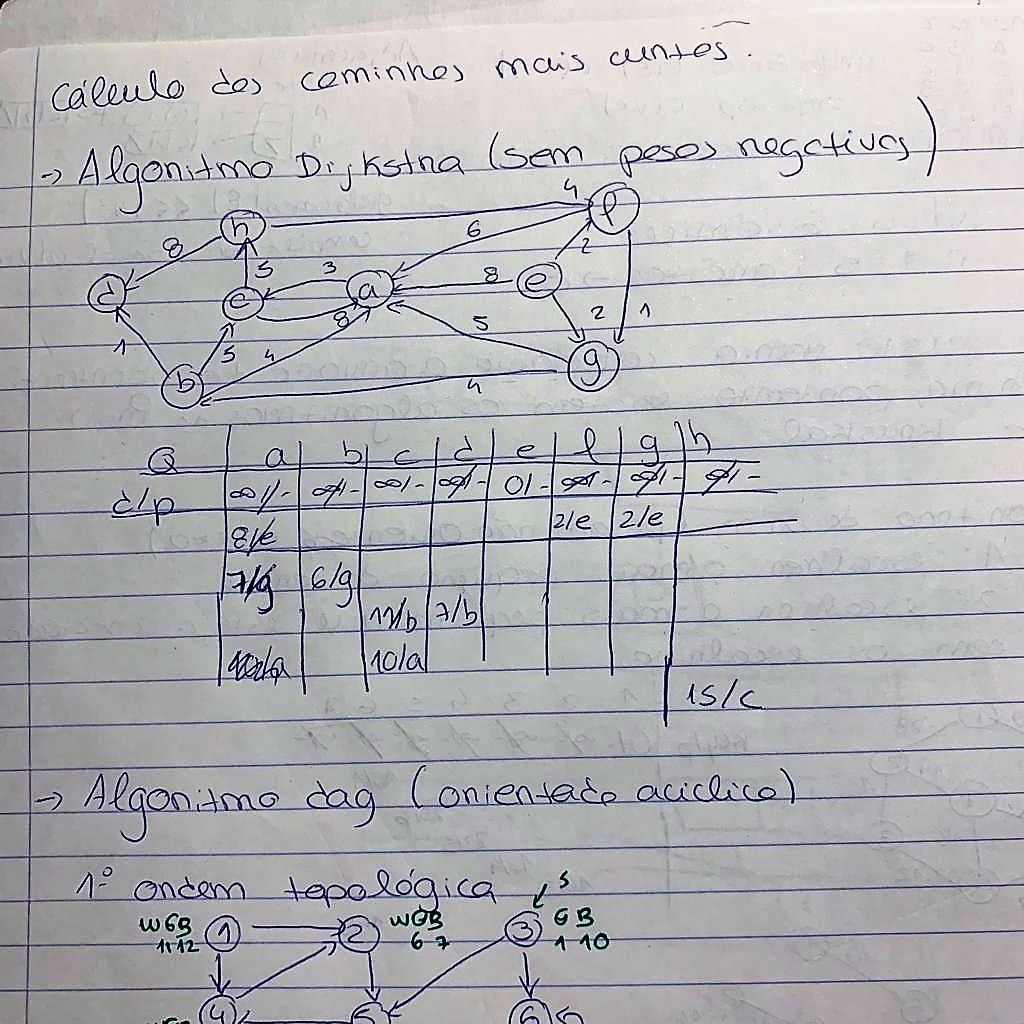 Cálculo dos caminhos mais curtos.
→ Algoritmo Dijkstra (sem pesos negativos)
h 4 f
8 6
5 3 2
d c a 8 e
8 2 1
1 5 4 5
b 4 g
Q a b c d e f g h
d/p ∞/- ∞/- ∞/- ∞/- 0/- ∞/- ∞/- ∞/-
8/e 2/e 2/e
7/g 6/g
11/b 7/b
10/a
15/c
→ Algoritmo dag (orientado acíclico)
1º ordem topológica s
WGB 1 2 WGB 3 GB
11 12 6 7 1 10
4 5 6